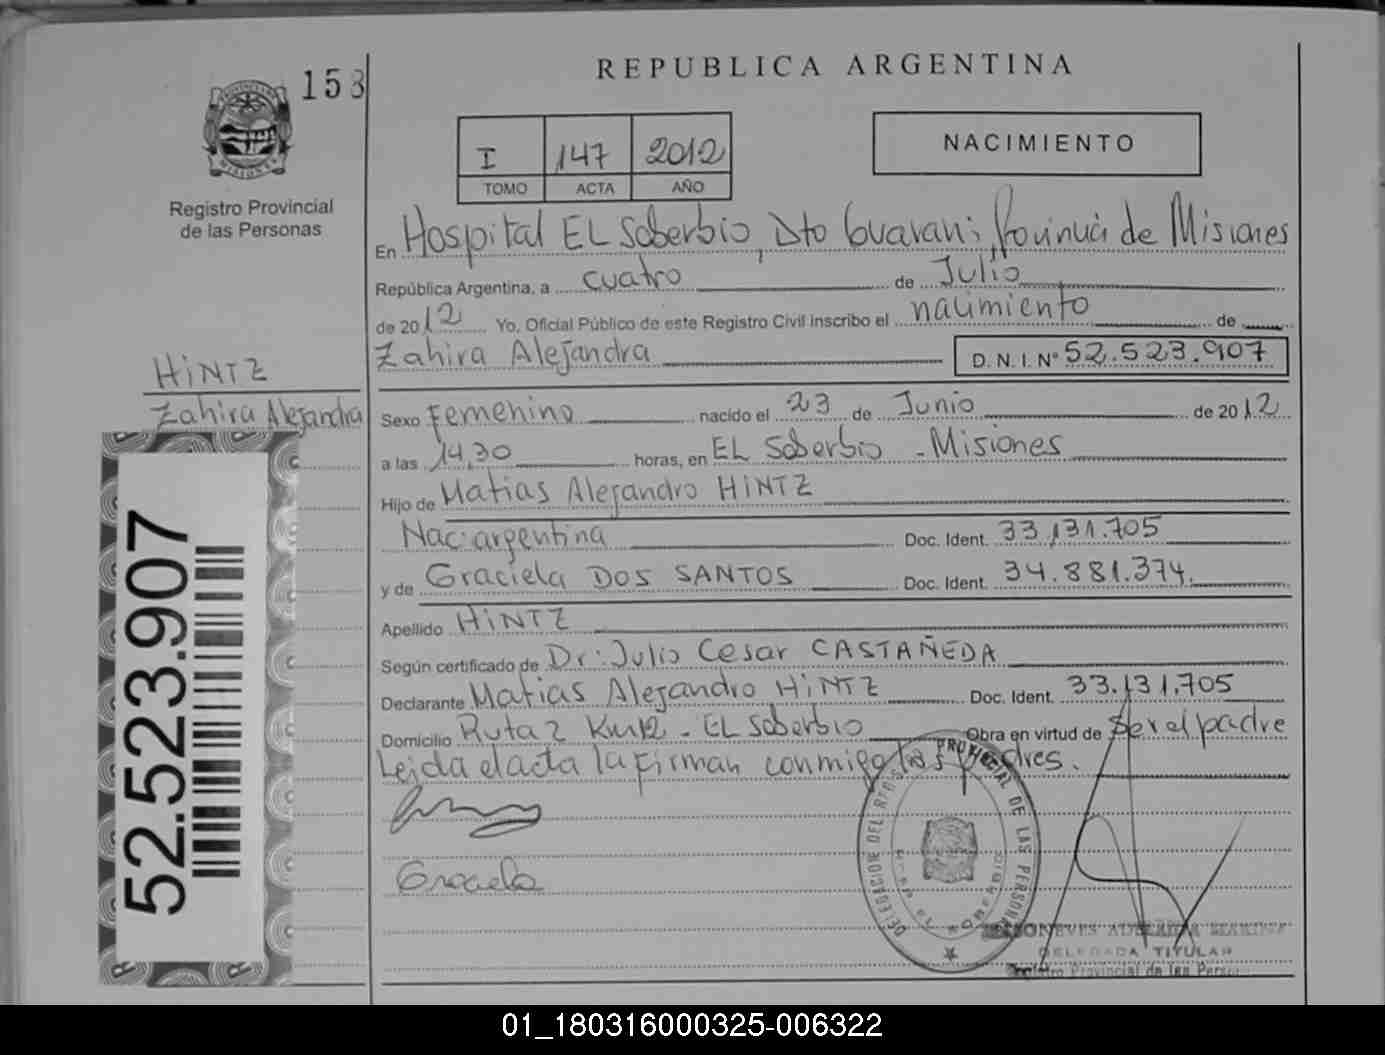 153
REPUBLICA ARGENTINA
I 147 2012
TOMO ACTA AÑO
NACIMIENTO
PROVINCIA DE MISIONES
Registro Provincial
de las Personas
En Hospital EL Soberbio, Dto Guarani, Provincia de Misiones
República Argentina, a cuatro de Julio
de 2012 Yo, Oficial Público de este Registro Civil inscribo el nacimiento de
Zahira Alejandra D. N. I. Nº 52.523.907
HiNTZ
Zahira Alejandra
Sexo Femenino nacido el 23 de Junio de 2012
a las 14,30 horas, en EL Soberbio - Misiones
Hijo de Matias Alejandro HiNTZ
Nac: argentina Doc. Ident. 33.131.705
y de Graciela DOS SANTOS Doc. Ident. 34.881.374.
Apellido HiNTZ
Según certificado de Dr: Julio Cesar CASTAÑEDA
Declarante Matias Alejandro HiNTZ Doc. Ident. 33.131.705
Domicilio Ruta 2 Km 12 - EL Soberbio Obra en virtud de Ser el padre
Leida el acta la firman conmigo los padres.
52.523.907
Graciela
DELEGACION DEL REG PROVINCIAL DE LAS PERSONAS
DELEGADA TITULAR
Registro Provincial de las Person
01_180316000325-006322